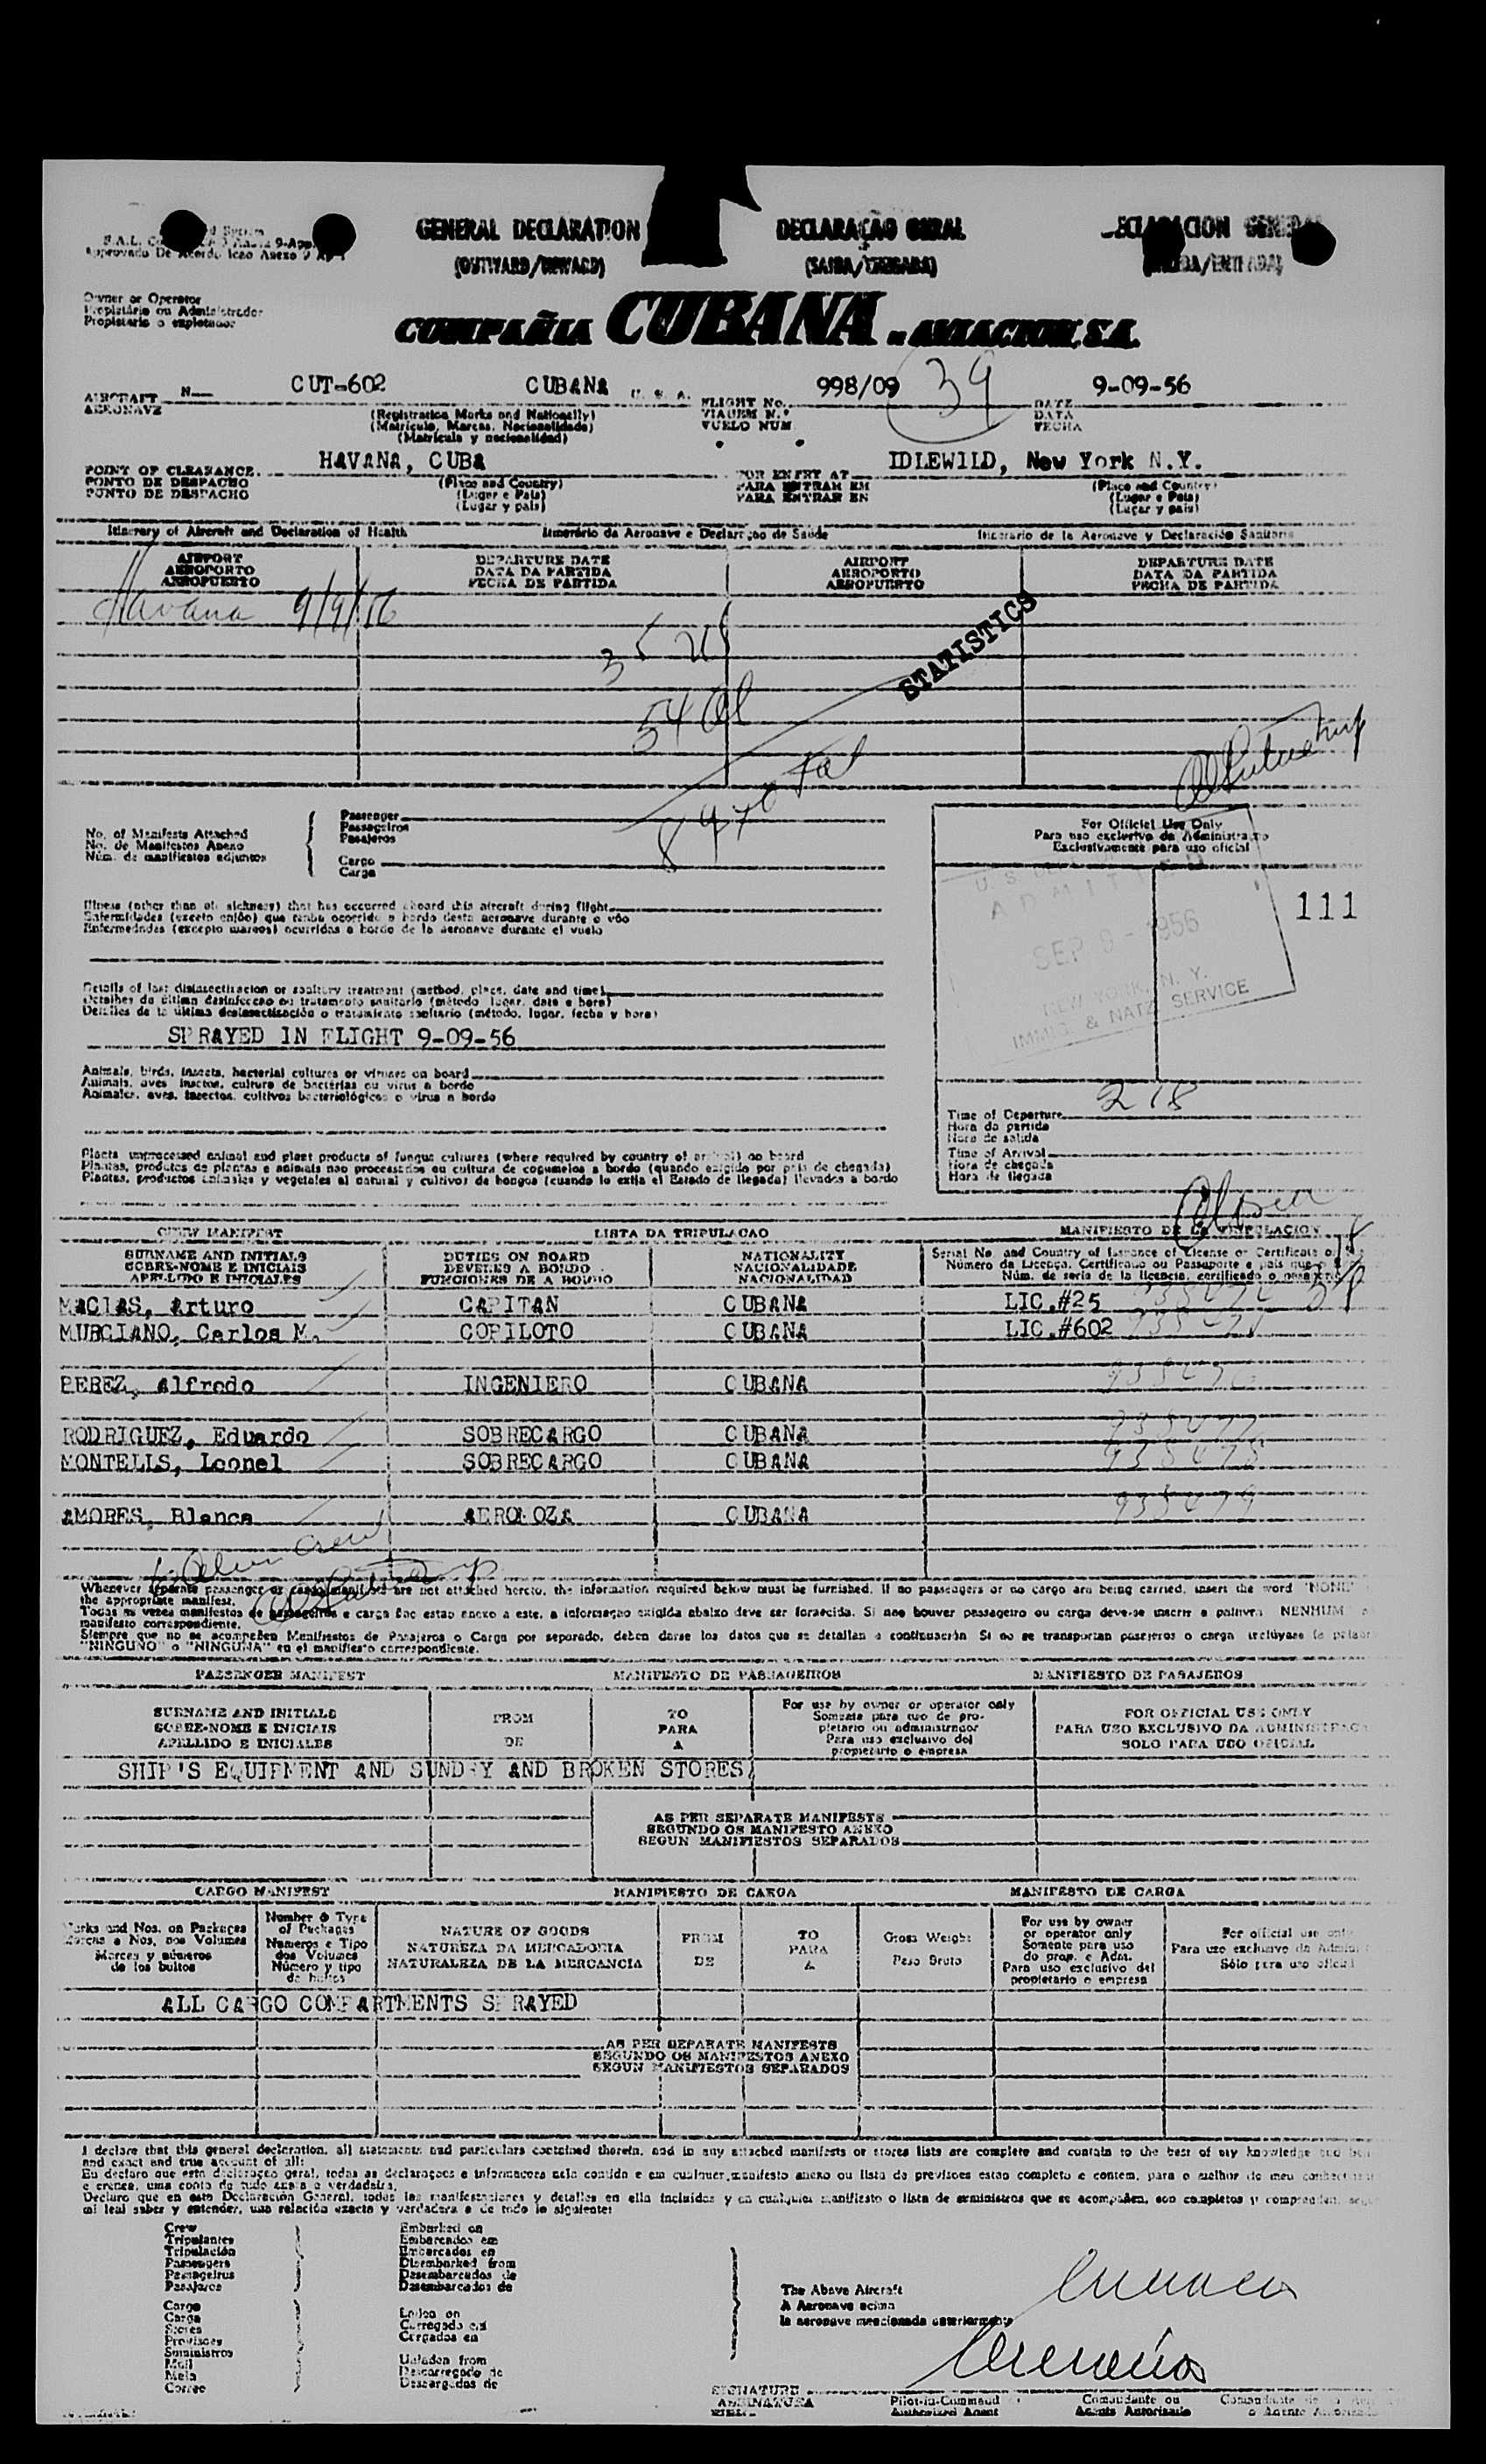 GENERAL DECLARATION
(OUTWARD/INWARD)
DECLARAÇÃO GERAL
(SAIDA/CHEGADA)
Owner or Operator
Propietário ou Administrador
Propietario o explotador
COMPAÑIA CUBANA DE AVIACION, S.A.
AIRCRAFT N CUT-602 CUBANA U. S. A. FLIGHT No. 998/09 39 DATE 9-09-56
AERONAVE (Registration Marks and Nationality) VIAGEM N.º DATA
(Matrícula, Marcas, Nacionalidade) VUELO NUM. FECHA
(Matrícula y nacionalidad)
POINT OF CLEARANCE HAVANA, CUBA FOR ENTRY AT IDLEWILD, New York N.Y.
PONTO DE DESPACHO (Place and Country) PARA ENTRAR EM (Place and Country)
PUNTO DE DESPACHO (Lugar e País) PARA ENTRAR EN (Lugar e País)
(Lugar y país) (Lugar y país)
Itinerary of Aircraft and Declaration of Health Itinerário da Aeronave e Declaração de Saúde Itinerario de la Aeronave y Declaración Sanitaria
AIRPORT DEPARTURE DATE AIRPORT DEPARTURE DATE
AEROPORTO DATA DA PARTIDA AEROPORTO DATA DA PARTIDA
AEROPUERTO FECHA DE PARTIDA AEROPUERTO FECHA DE PARTIDA
Havana 9/9/56
STATISTICS
No. of Manifests Attached Passenger
No. de Manifestos Anexo Passageiros
Núm. de manifiestos adjuntos Pasajeros
Cargo
Carga
For Official Use Only
Para uso exclusivo da Administração
Exclusivamente para uso oficial
ADMITTED
SEP 9 - 1956
NEW YORK, N. Y.
IMMIG. & NATZ SERVICE
111
Illness (other than air sickness) that has occurred aboard this aircraft during flight
Enfermidades (exceto enjôo) que tenha ocorrido a bordo desta aeronave durante o vôo
Enfermedades (excepto mareos) ocurridas a bordo de la aeronave durante el vuelo
Details of last disinsectization or sanitary treatment (method, place, date and time)
Detalhes da última desinfeccao ou tratamento sanitario (método, lugar, data e hora)
Detalles de la última desinsectización o tratamiento sanitario (método, lugar, fecha y hora)
SPRAYED IN FLIGHT 9-09-56
Animals, birds, insects, bacterial cultures or viruses on board
Animais, aves insectos, cultura de bactérias ou virus a bordo
Animales, aves, insectos, cultivos bacteriológicos o virus a bordo
Time of Departure 218
Hora da partida
Hora de salida
Time of Arrival
Hora de chegada
Hora de llegada
Plants unprocessed animal and plant products of fungus cultures (where required by country of arrival) on board
Plantas, produtos de plantas e animais nao processados ou cultura de cogumelos a bordo (quando exigido por pais de chegada)
Plantas, productos animales y vegetales al natural y cultivos de hongos (cuando lo exija el Estado de llegada) llevados a bordo
CREW MANIFEST LISTA DA TRIPULACAO MANIFIESTO DE LA TRIPULACION
SURNAME AND INITIALS DUTIES ON BOARD NATIONALITY Serial No. and Country of Issuance of License or Certificate
SOBRE-NOME E INICIAIS DEVERES A BORDO NACIONALIDADE Número da Licença, Certificado ou Passaporte e país que
APELLIDO E INICIALES FUNCIONES DE A BORDO NACIONALIDAD Núm. de serie de la licencia, certificado o pasaporte
MACIAS, Arturo CAPITAN CUBANA LIC.#25
MURCIANO, Carlos M. COPILOTO CUBANA LIC.#602
PEREZ, Alfredo INGENIERO CUBANA 935476
RODRIGUEZ, Eduardo SOBRECARGO CUBANA 935477
MONTELLS, Leonel SOBRECARGO CUBANA 935478
AMORES, Blanca AEROMOZA CUBANA 935479
Whenever separate passenger or cargo manifests are not attached hereto, the information required below must be furnished. If no passengers or no cargo are being carried, insert the word "NONE"
the appropriate manifest.
Todas as vezes manifestos de passageiros e carga não estao anexo a este, a informaçao exigida abaixo deve ser fornecida. Si nao houver passageiro ou carga deve-se inscrir a palavra NENHUM
manifesto correspondiente.
Siempre que no se acompañen Manifiestos de Pasajeros o Carga por separado, deben darse los datos que se detallan a continuación Si no se transportan pasajeros o carga inclúyase la
"NINGUNO" o "NINGUNA" en el manifiesto correspondiente.
PASSENGER MANIFEST MANIFESTO DE PASSAGEIROS MANIFIESTO DE PASAJEROS
SURNAME AND INITIALS FROM TO For use by owner or operator only FOR OFFICIAL USE ONLY
SOBRE-NOME E INICIAIS DE PARA Somente para uso de pro-
APELLIDO E INICIALES A pietario ou administrador SOLO PARA USO OFICIAL
Para uso exclusivo del
propietario o empresa
SHIP'S EQUIPMENT AND SUNDRY AND BROKEN STORES
AS PER SEPARATE MANIFESTS
SEGUNDO OS MANIFESTO ANEXO
SEGUN MANIFIESTOS SEPARADOS
CARGO MANIFEST MANIFIESTO DE CARGA MANIFESTO DE CARGA
Marks and Nos. on Packages Number & Type of Packages NATURE OF GOODS FROM TO Gross Weight For use by owner or operator only For official use only
Marcas e Nos. nos Volumes Numeros e Tipo dos Volumes NATUREZA DA MERCADORIA DE PARA Peso Bruto Somente para uso do prop. e Adm.
Marcas y números de los bultos Número y tipo de bultos NATURALEZA DE LA MERCANCIA A Para uso exclusivo del propietario o empresa Sólo para uso oficial
ALL CARGO COMPARTMENTS SPRAYED
AS PER SEPARATE MANIFESTS
SEGUNDO OS MANIFESTOS ANEXO
SEGUN MANIFIESTOS SEPARADOS
I declare that this general declaration, all statements and particulars contained therein, and in any attached manifests or stores lists are complete and contain to the best of my knowledge and
and exact and true account of all:
Eu declaro que esta declaraçao geral, todas as declaraçoes e informacoes nela contida e em cualquer manifesto anexo ou lista de previsoes estao completo e contem, para o melhor de meu
e crença, uma conta de tudo exata e verdadeira.
Declaro que en esta Declaración General, todas las manifestaciones y detalles en ella incluidos y en cualquier manifiesto o lista de suministros que se acompañen, son completos y comprenden,
mi leal saber y entender, una relación exacta y verdadera e de todo lo siguiente:
Crew Embarked on
Tripulantes Embarcados em
Tripulación Embarcados en
Passengers Disembarked from
Passageiros Desembarcados de
Pasajeros Desembarcados de
Cargo Laden on
Carga Carregado em
Stores Cargados en
Provisoes
Suministros Unladen from
Mail Descarregado de
Mala Descargados de
Correo
The Above Aircraft
A Aeronave acima
la aeronave mencionada anteriormente
SIGNATURE Pilot-in-Command Comandante ou
ASSINATURA Authorized Agent Agente Autorizado